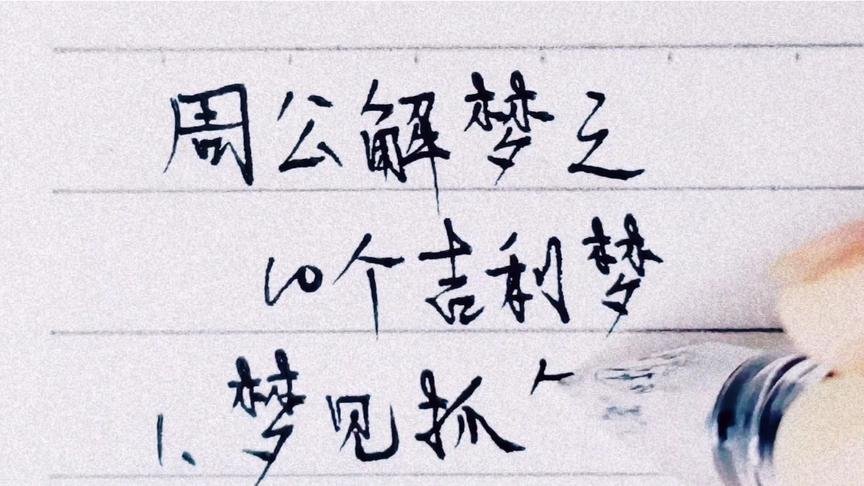 周公解梦之
10个吉利梦
1、梦见抓